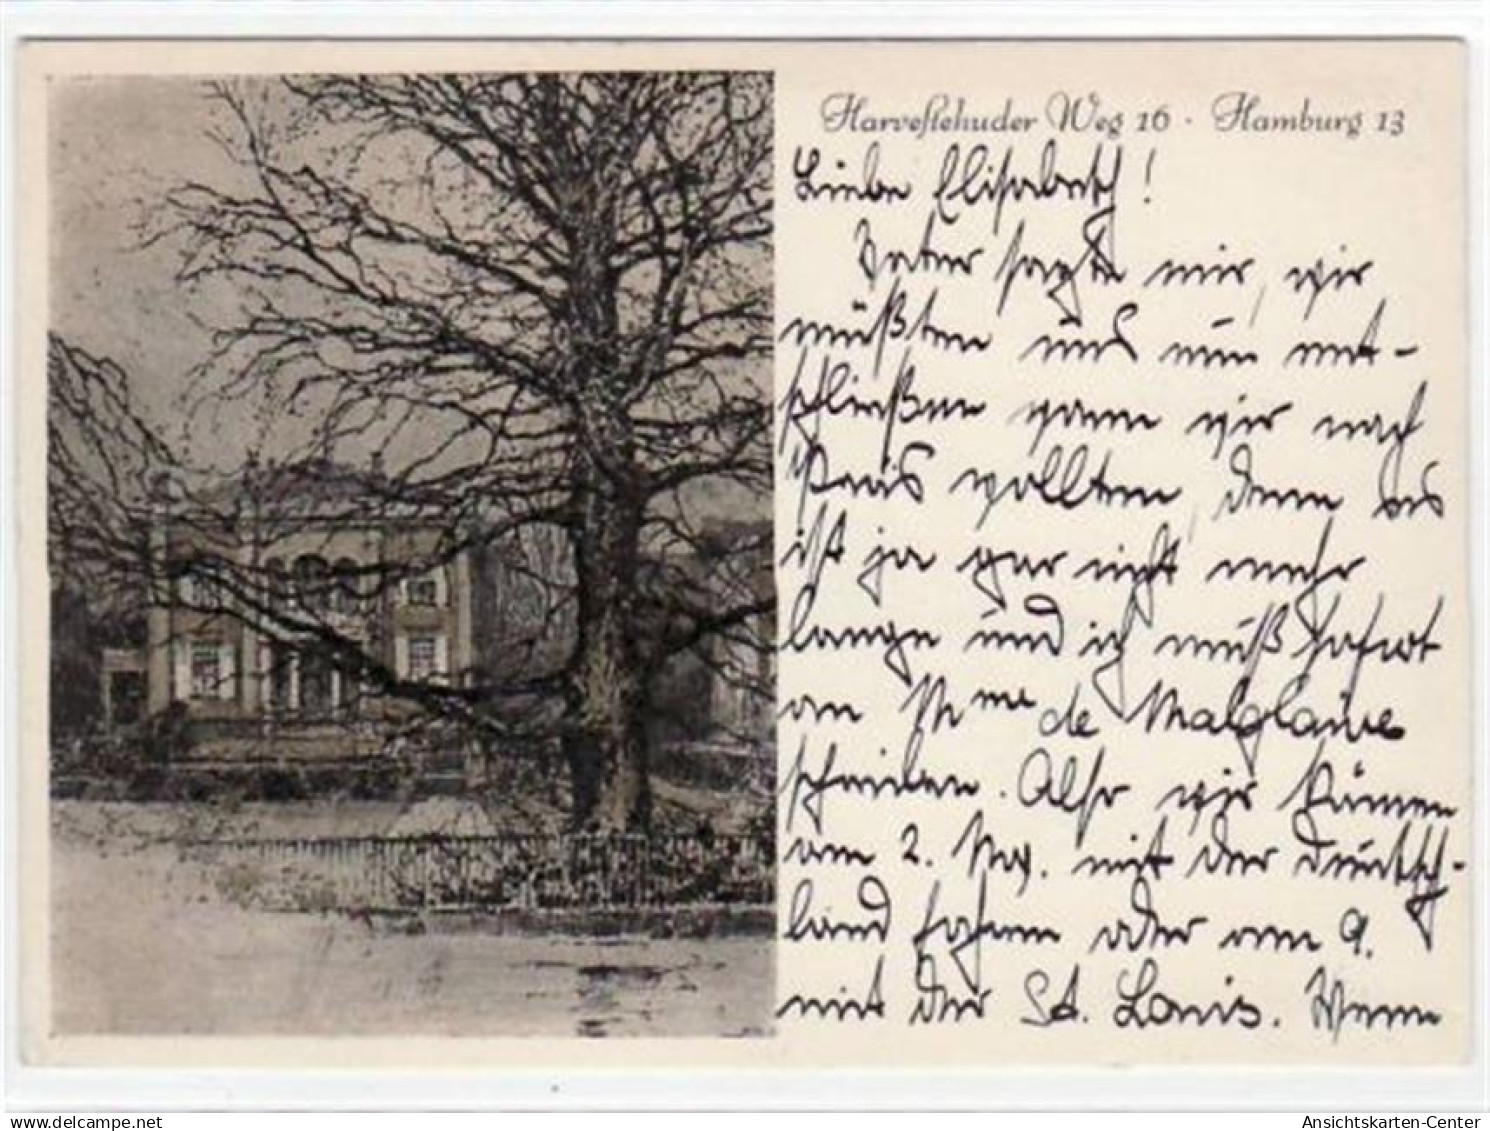 Harvestehuder Weg 16 · Hamburg 13
Liebe Elisabeth!
Vater sagte mir, wir
müßten uns nun ent-
schließen wann wir nach
Paris wollten, denn es
ist ja gar nicht mehr
lange und ich muß sofort
an Mme de Malglaive
schreiben. Also wir können
am 2. Nov. mit der Deutsch-
land fahren oder am 9.
mit der St. Louis. Wenn
delcampe.net
Ansichtskarten-Center